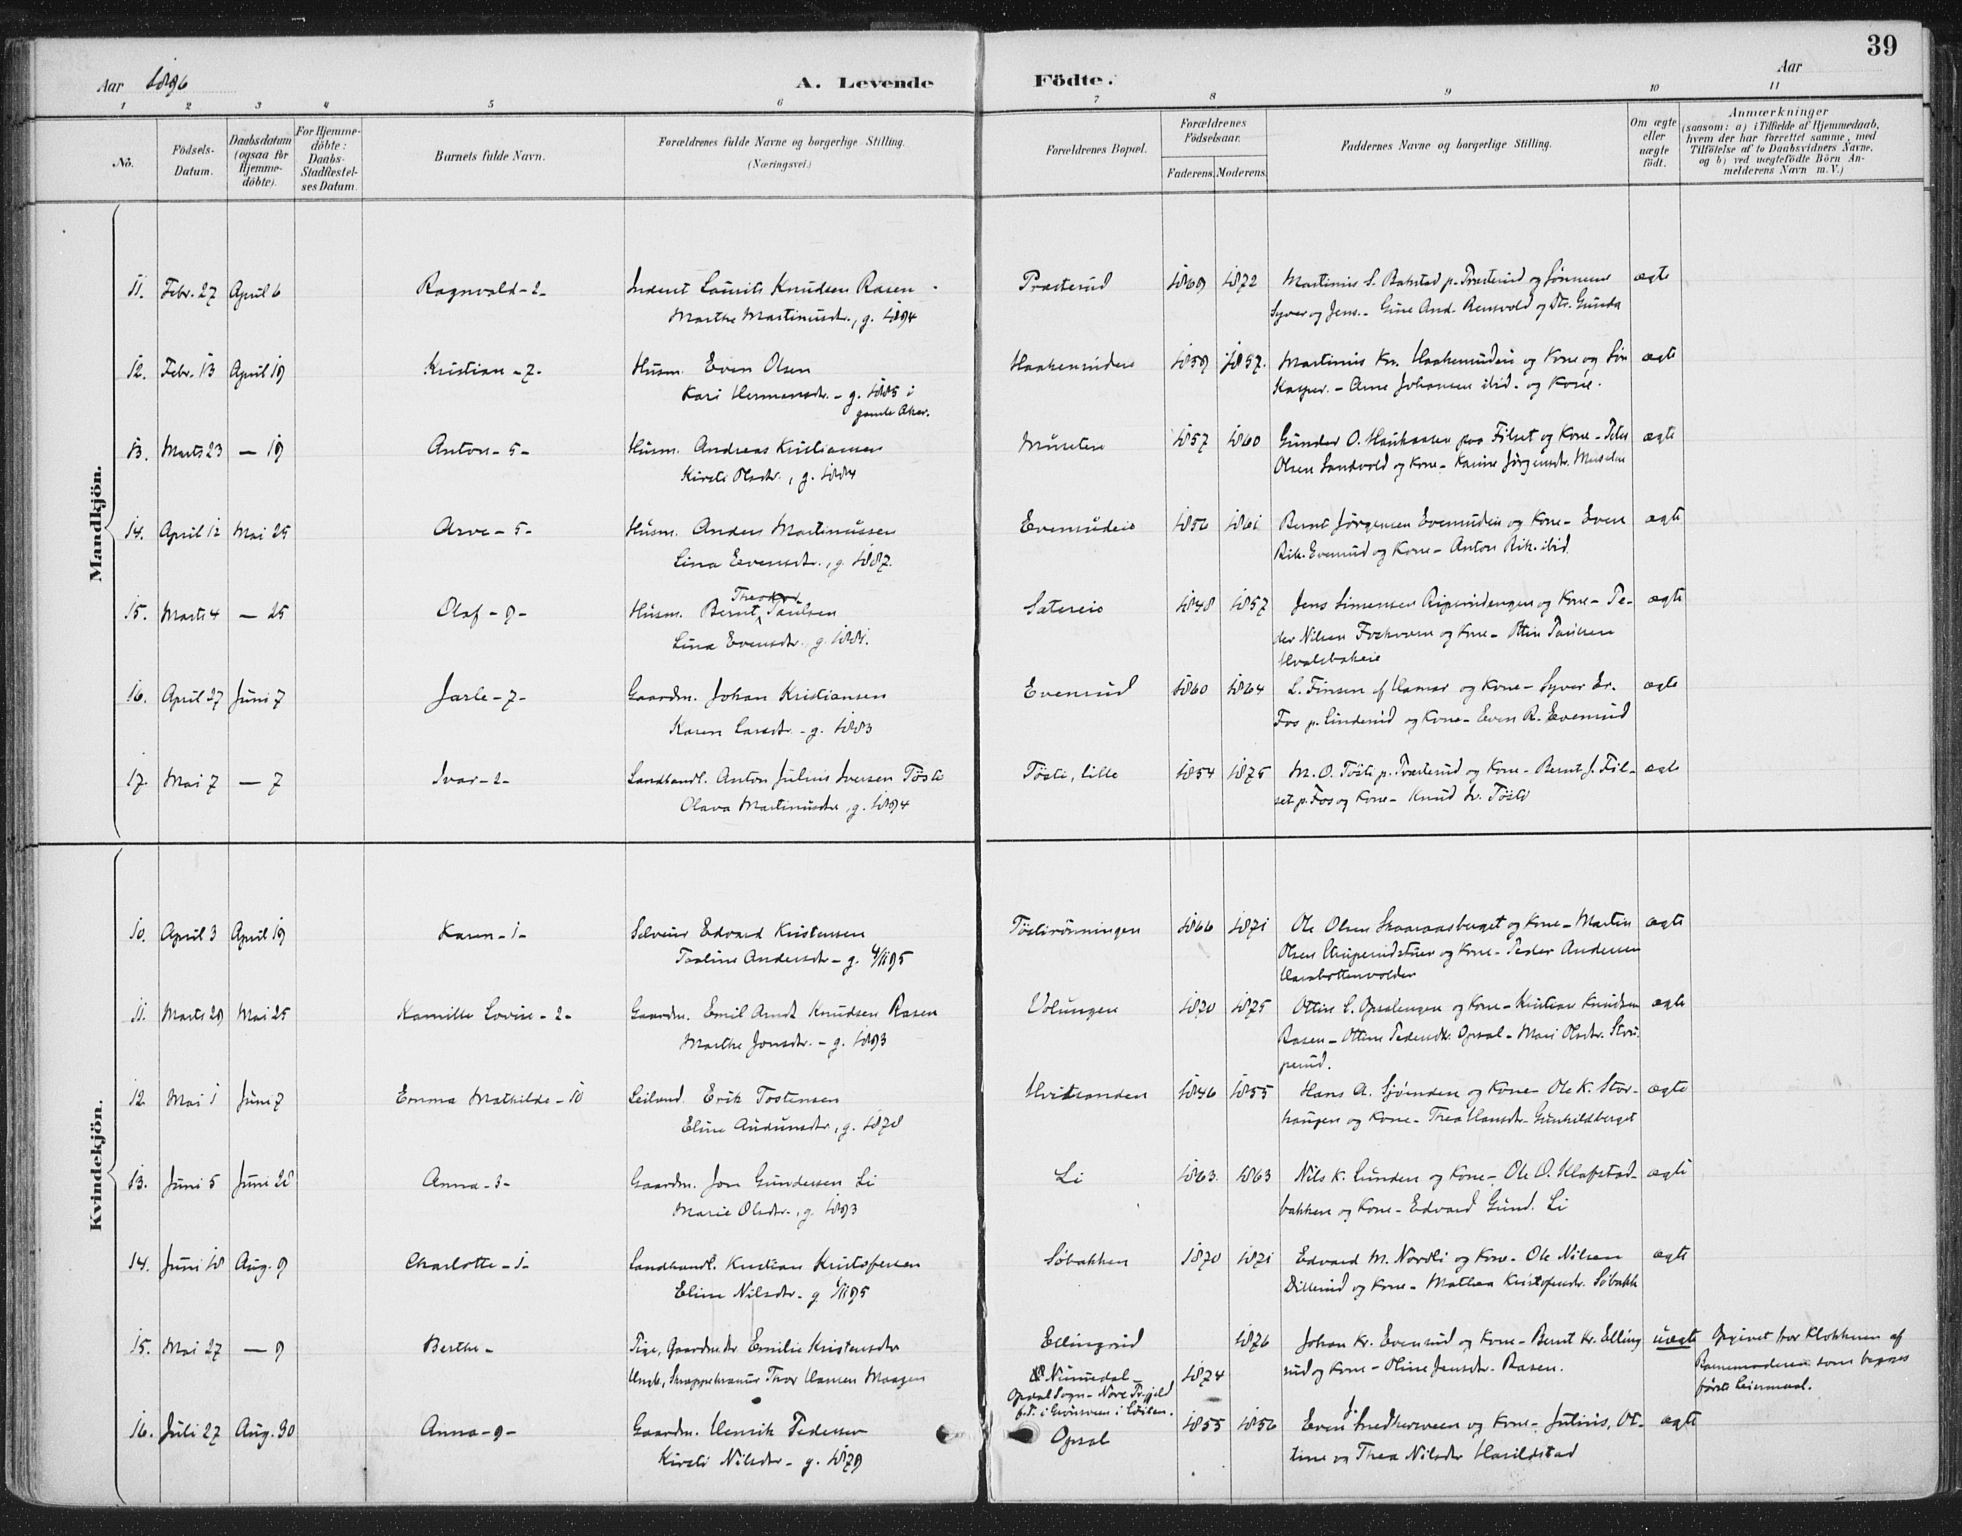 39
Aar 1896 A. Levende Födte. Aar
1 2 3 4 5 6 7 8 9 10 11
No. Födsels-Datum. Daabsdatum (ogsaa for Hjemme-döbte). For Hjemme-döbte: Daabs-Stadfæstel-ses Datum. Barnets fulde Navn. Forældrenes fulde Navne og borgerlige Stilling. (Næringsvei.) Forældrenes Bopæl. Forældrenes Födselsaar. Faderens. Moderens. Faddernes Navne og borgerlige Stilling. Om ægte eller uægte födt. Anmærkninger (saasom: a) i Tilfælde af Hjemmedaab, hvem der har forrettet samme, med Tilföielse af to Daabsvidners Navne, og b) ved uægtefödte Börn An-melderens Navn m. V.)
Mandkjön.
11. Febr. 27 April 6 Ragnvald - 2 - Inderst Laurits Knudsen Rasen Præsterud 1869 1872 Martinus S. Bakstad p. Præsterud og Sønnene ægte
Marthe Martinusdr., g. 1894 Syver og Jens. - Gine And. Rensvold og Dtr. Gunda
12. Febr. 13 April 19 Kristian - 7 - Husm. Even Olsen Haakenrudeie 1859 1857. Martinus Kr. Haakenrudeie og Kone og Søn ægte
Kari Hermansdr. - g. 1885 i Kasper. - Arne Johansen ibid. og Kone.
gamle Aker.
13. Marts 23 — 19 Anton - 5 - Husm. Andreas Kristiansen 1857 1860 Gunder O. Haukaasen paa Filset og Kone - Peter ægte
Kirsti Olsdr., g. 1884 Olsen Sandvold og Kone - Karine Jørgensdr.
14. April 12 Mai 25 Arve - 5 - Husm. Anders Martinussen Evenrudeie 1856 1861 Bernt Jørgensen Evenrudeie og Kone - Even ægte
Lina Evensdr., g. 1887. Rik. Evenrud og Kone - Anton Rik. ibid.
15. Marts 4 — 25 Olaf - 9 - Husm. Bernt Theodor Paulsen Sætereie 1848 1857 Jens Simensen og Kone - Pe- ægte
Lina Evensdr. g. 1881. der Nilsen og Kone - Ottin Paulsen
Hvalsbakeie
16. April 27 Juni 7 Jarle - 7 - Gaardm. Johan Kristiansen Evenrud 1860 1864 L. Finsen af Hamar og Kone - Syver Er. ægte
Karen Larsdr. - g. 1883 Fos p. Linderud og Kone - Even R. Evenrud
17. Mai 7 — 7 Ivar - 2 - Landhandl. Anton Julius Iversen Tøsti Tøsti, lille 1854 1875 M. O. Tøsti p. Præsterud og Kone - Bernt J. Fil- ægte
Olava Martinusdr., g. 1894 set p. Fos og Kone - Knud Iv. Tøsti
Kvindekjön.
10. April 3 April 19 Karen - 1 - Selveier Edvard Kristensen Tøstirønningen 1866 1871 Ole Olsen Skaaraasberget og Kone - Martin ægte
Paaline Andersdr - g. 4/11 95 Olsen og Kone - Peder Andersen
11. Marts 29 Mai 25 Kamilla Lovise - 2 - Gaardm. Emil Arndt Knudsen Rasen Volungen 1870 1875 Ottin L. Opsalengen og Kone - Kristian Knudsen ægte
Marthe Jonsdr. - g. 1893 Rasen - Ottine Pedersdr. Opsal - Mari Olsdr. Stru-
perud.
12 Mai 1 Juni 7 Emma Mathilde - 10 Leilænd. Erik Tostensen Hvitsanden 1846 1855 Hans A. Sjømden og Kone - Ole K. Stor- ægte
Eline Audunsdr, g. 1878 haugen og Kone - Thea Hansdr. Gunhildberget
13. Juni 5 Juni 28 Anna - 3 - Gaardm. Jon Gundersen Li Li 1863. 1863 Nils K. Lunden og Kone - Ole O. Klafstad- ægte
Marie Olsdr., g. 1893 bakken og Kone - Edvard Gund. Li
14. Juni 18 Aug. 9 Charlotte - 1 - Landhandl. Kristian Kristofersen Søbakken 1870 1871 Edvard M. Nordli og Kone - Ole Nilsen ægte
Eline Nilsdr - g. 1/11 95 Dillerud og Kone - Mathea Kristofersdr. Søbakk
15. Mai 27 — 9 Berthe - Pige, Gaardm.dr. Emilie Kristensdr Ellingsrud 1876 Johan Kr. Evenrud og Kone - Bernt Kr. Elling- uægte Opgivet for Klokkeren af
Ungk., Skræppekræmmer Thor Hansen Maagen Numedal - 1874 rud og Kone - Oline Jensdr. Rasen. Barnemoderen som begges
Opdal Sogn - Nore Prgjeld første Leiermaal.
f. T. i Grønsveen i Løiten.
16. Juli 27 Aug. 30 Anna - 9 - Gaardm. Henrik Pedersen Opsal 1855 1856 Even J. Smedkersveen og Kone - Julius, Ot- ægte
Kirsti Nilsdr - g. 1879 tine og Thea Nilsdr Harildstad